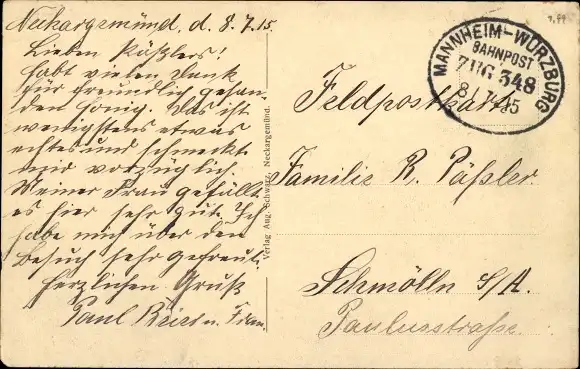 Neckargemünd, d. 8.7.15.
Lieben Päßlers!
Habt vielen Dank
für freundlich gesan-
den Honig. Das ist
wenigstens etwas
echtes und schmeckt
mir vorzüglich.
Meiner Frau gefällt
es hier sehr gut. Ich
habe mich über den
Besuch sehr gefreut.
Herzlichen Gruß
Paul u. Frau.
Verlag Aug. Schwarz, Neckargemünd.
MANNHEIM-WÜRZBURG
BAHNPOST
ZUG 348
8 7 15
Feldpostkarte
Familie R. Päßler.
Schmölln S/A.
Paulusstraße.